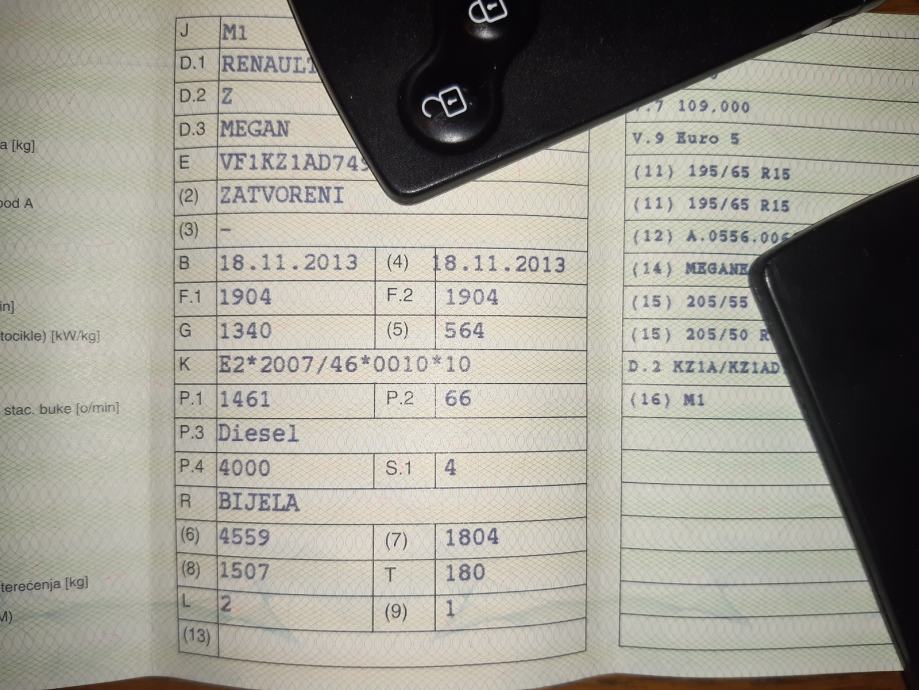 J M1
D.1 RENAULT
D.2 Z
D.3 MEGAN
E VF1KZ1AD749
(2) ZATVORENI
(3) –
B 18.11.2013 (4) 18.11.2013
F.1 1904 F.2 1904
G 1340 (5) 564
K E2*2007/46*0010*10
P.1 1461 P.2 66
P.3 Diesel
P.4 4000 S.1 4
R BIJELA
(6) 4559 (7) 1804
(8) 1507 T 180
L 2 (9) 1
(13)
a [kg]
od A
in]
tocikle) [kW/kg]
stac. buke [o/min]
terećenja [kg]
M)
V.7 109,000
V.9 Euro 5
(11) 195/65 R15
(11) 195/65 R15
(12) A.0556.00
(14) MEGANE
(15) 205/55
(15) 205/50 R
D.2 KZ1A/KZ1AD
(16) M1